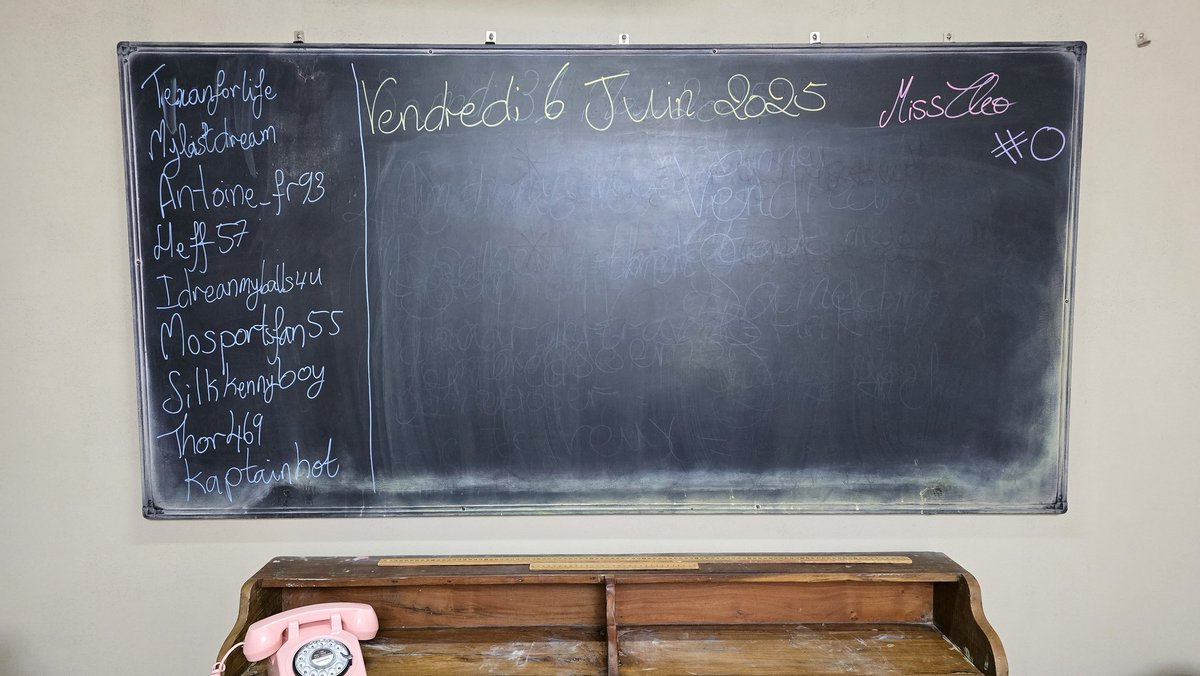 Texanforlife
Mylastdream
Antoine_fr93
Heff57
Idreanmyballs4u
Mosportsfan55
Silkkennyboy
Thor469
kaptainhot
Vendredi 6 Juin 2025
MissCleo
#0